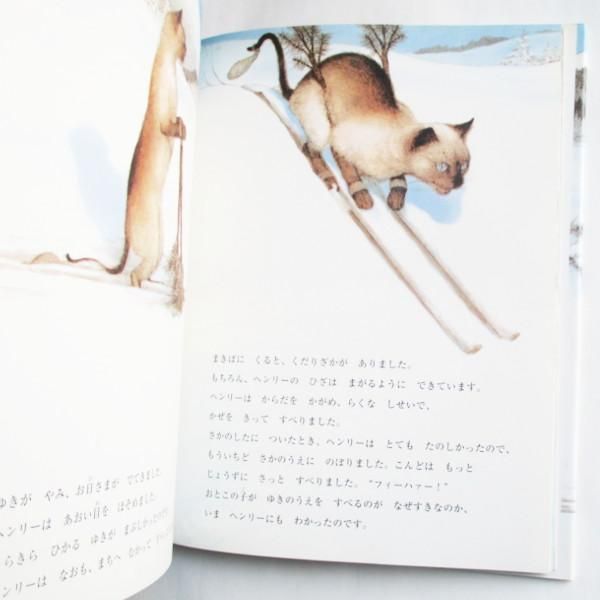 ゆきが　やみ、お日さまが　でてきました。
ヘンリーは　あおい目を　ほそめました。
きらきら　ひかる　ゆきが　まぶしかったのです。
ヘンリーは　なおも、まちへ　むかって
まきばに　くると、くだりざかが　ありました。
もちろん、ヘンリーの　ひざは　まがるように　できています。
ヘンリーは　からだを　かがめ、らくな　しせいで、
かぜを　きって　すべりました。
さかのしたに　ついたとき、ヘンリーは　とても　たのしかったので、
もういちど　さかのうえに　のぼりました。こんどは　もっと
じょうずに　さっと　すべりました。“フィーハァー！”
おとこの子が　ゆきのうえを　すべるのが　なぜすきなのか、
いま　ヘンリーにも　わかったのです。